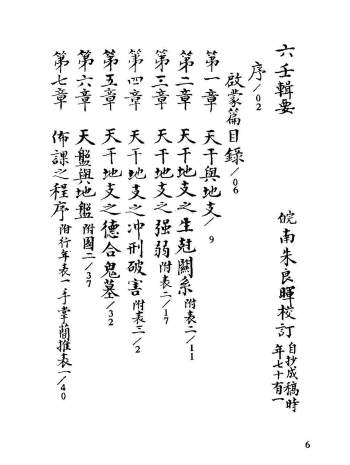 六壬輯要
皖南朱良暉校訂 自抄成稿時年七十有一
序/02
啟蒙篇目錄/06
第一章 天干與地支/9
第二章 天干地支之生尅關系 附表二/11
第三章 天干地支之强弱 附表二/17
第四章 天干地支之冲刑破害 附表三/2
第五章 天干地支之德合鬼墓/32
第六章 天盤與地盤 附國二/37
第七章 佈課之程序 附行年表一手掌簡推表一/40
6